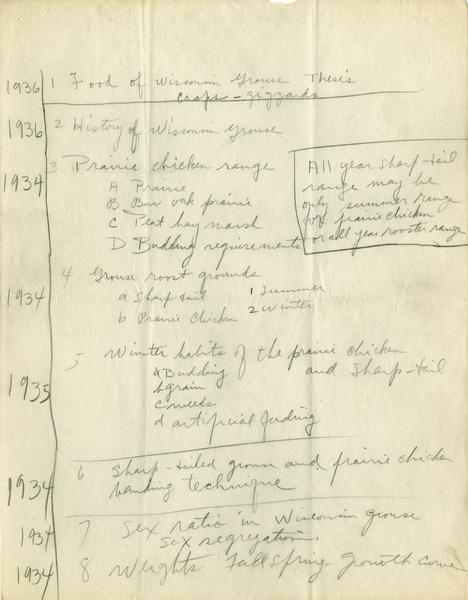 1936 1 Food of Wisconsin Grouse Thesis
crops - gizzards
1936 2 History of Wisconsin Grouse
3 Prairie chicken range
1934
A Prairie
B Bur oak prairie
C Peat hay marsh
D Budding requirements
All year Sharp-tail
range may be
only summer range
for prairie chicken
or all year rooster range
4 Grouse roost grounds
1934 a Sharp tail 1 Summer
b Prairie Chicken 2 Winter
5 Winter habits of the prairie chicken
and Sharp-tail
1935
a Budding
b grain
c weeds
d artificial feeding
1934 6 Sharp-tailed grouse and prairie chicken
banding technique
1934 7 Sex ratio in Wisconsin grouse
Sex segregation.
1934 8 Weights Fall Spring growth curve